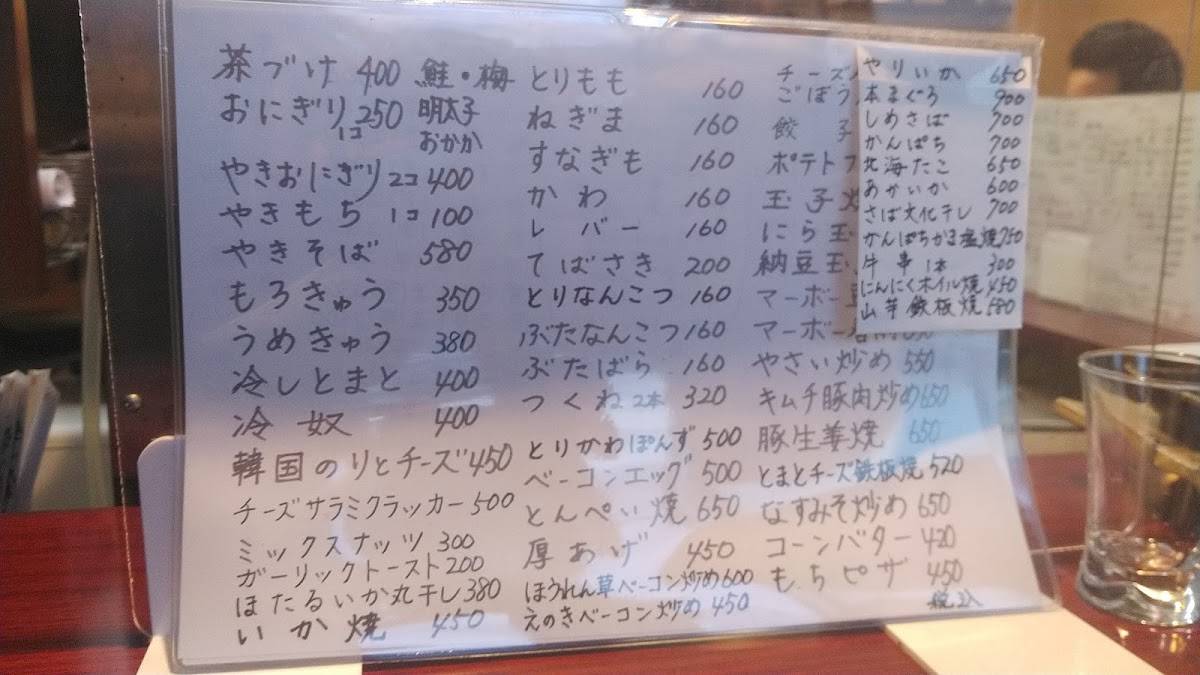 茶づけ 400 鮭・梅
おにぎり 1コ 250 明太子
おかか
やきおにぎり 2コ 400
やきもち 1コ 100
やきそば 580
もろきゅう 350
うめきゅう 380
冷しとまと 400
冷奴 400
韓国のりとチーズ 450
チーズサラミクラッカー 500
ミックスナッツ 300
ガーリックトースト 200
ほたるいか丸干し 380
いか焼 450
とりもも 160
ねぎま 160
すなぎも 160
かわ 160
レバー 160
てばさき 200
とりなんこつ 160
ぶたなんこつ 160
ぶたばら 160
つくね 2本 320
とりかわぽんず 500
ベーコンエッグ 500
とんぺい焼 650
厚あげ 450
ほうれん草ベーコン炒め 600
えのきベーコン炒め 450
チーズ
ごぼう
餃子
ポテトフ
玉子
にら玉
納豆玉
マーボー
マーボー
やさい炒め 550
キムチ豚肉炒め 650
豚生姜焼 650
とまとチーズ鉄板焼 520
なすみそ炒め 650
コーンバター 420
もちピザ 450
税込
やりいか 650
本まぐろ 900
しめさば 700
かんぱち 700
北海たこ 650
あかいか 600
さば文化干し 700
かんぱちかま塩焼 750
牛串 1本 300
にんにくホイル焼 450
山芋鉄板焼 580